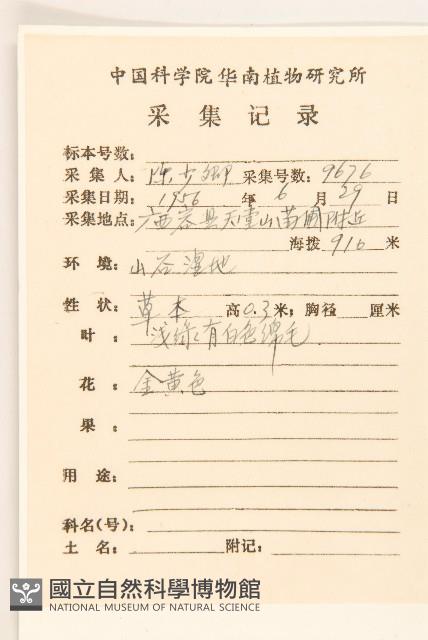 中国科学院华南植物研究所
采集记录
标本号数:
采集人: 陈少卿 采集号数: 9676
采集日期: 1956 年 6 月 29 日
采集地点: 广西容县天堂山苗圃附近
海拨 916 米
环境: 山谷湿地
性状: 草本 高 0.3 米; 胸径 厘米
叶: 浅绿有白色绵毛
花: 金黄色
果:
用途:
科名(号):
土名: 附记:
國立自然科學博物館
NATIONAL MUSEUM OF NATURAL SCIENCE